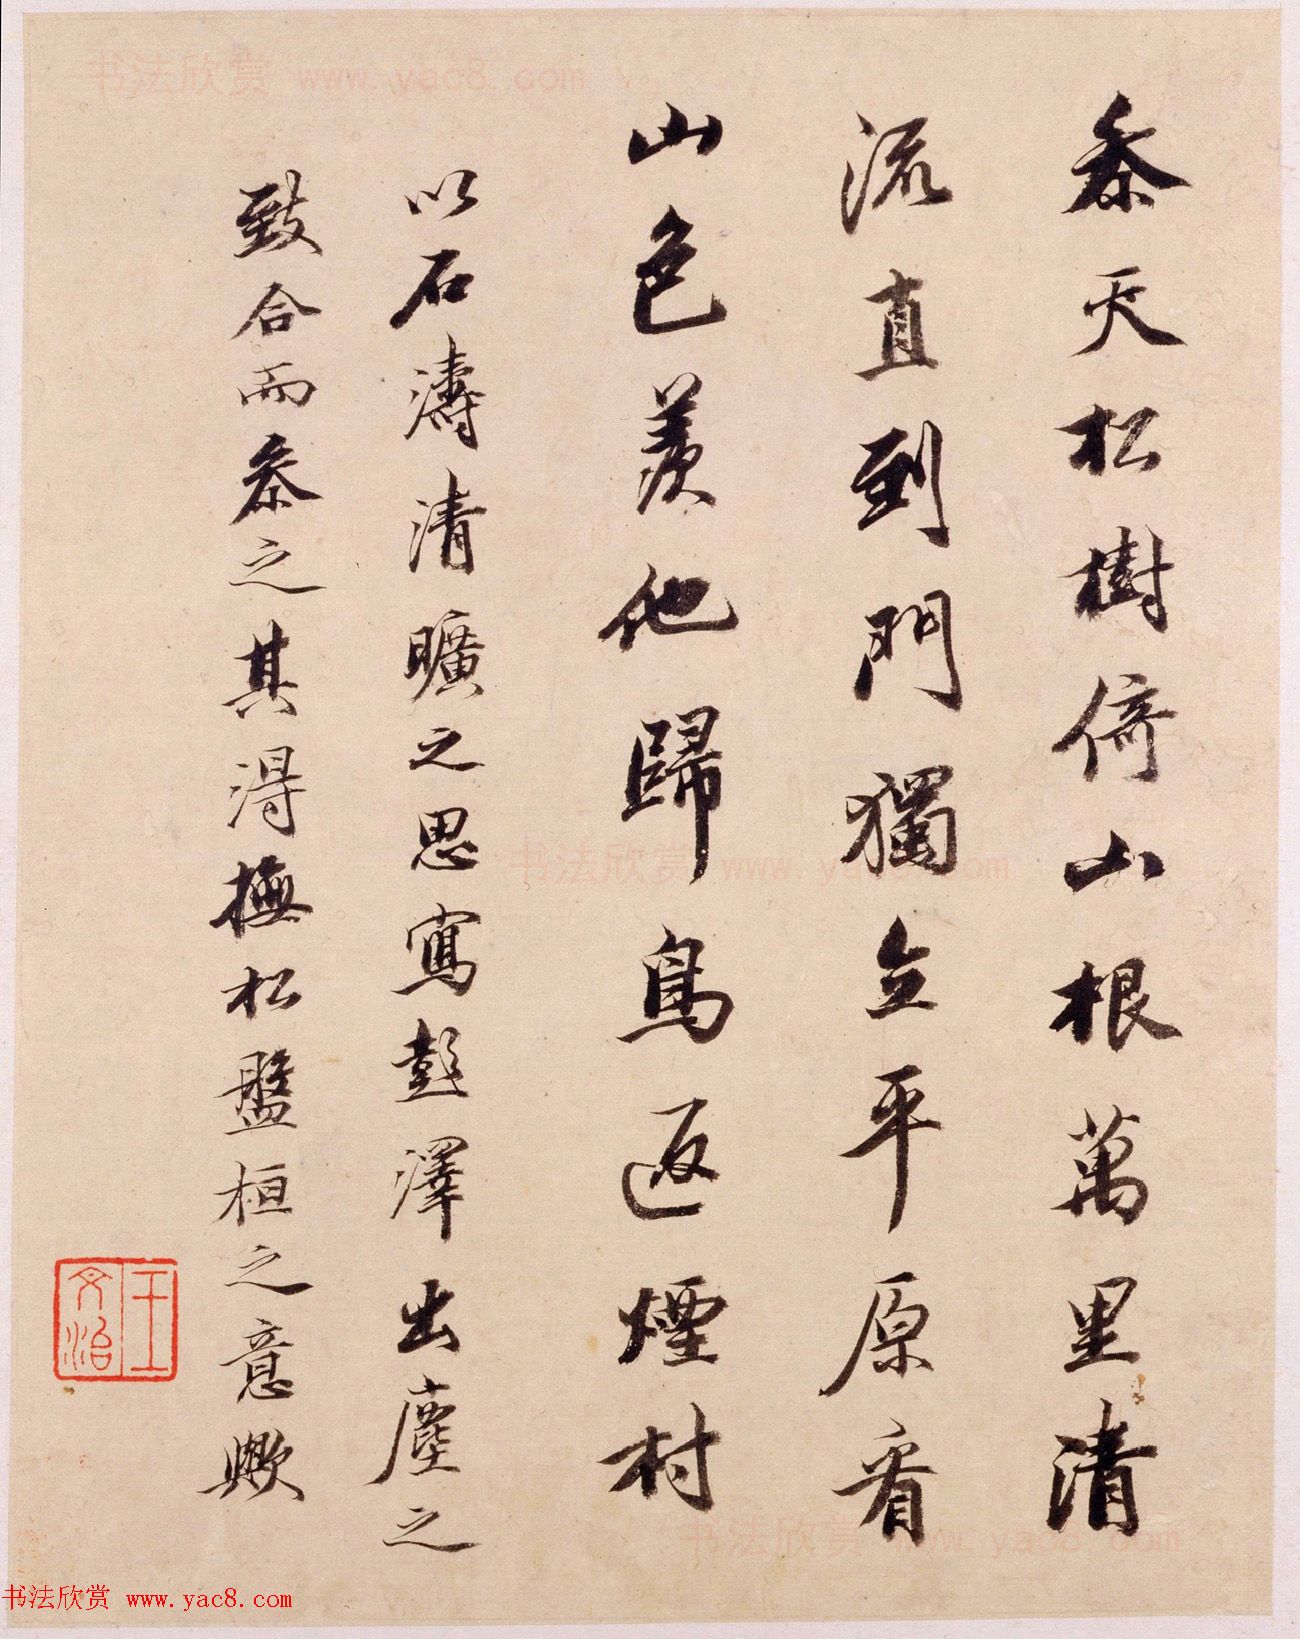 參天松樹倚山根萬里清
流直到門獨立平原看
山色羨他歸鳥返煙村
以石濤清曠之思寫彭澤出塵之
致合而參之其得撫松盤桓之意歟
王文治
书法欣赏 www.yac8.com
书法欣赏 www.yac8.com
书法欣赏 www.yac8.com
书法欣赏 www.yac8.com